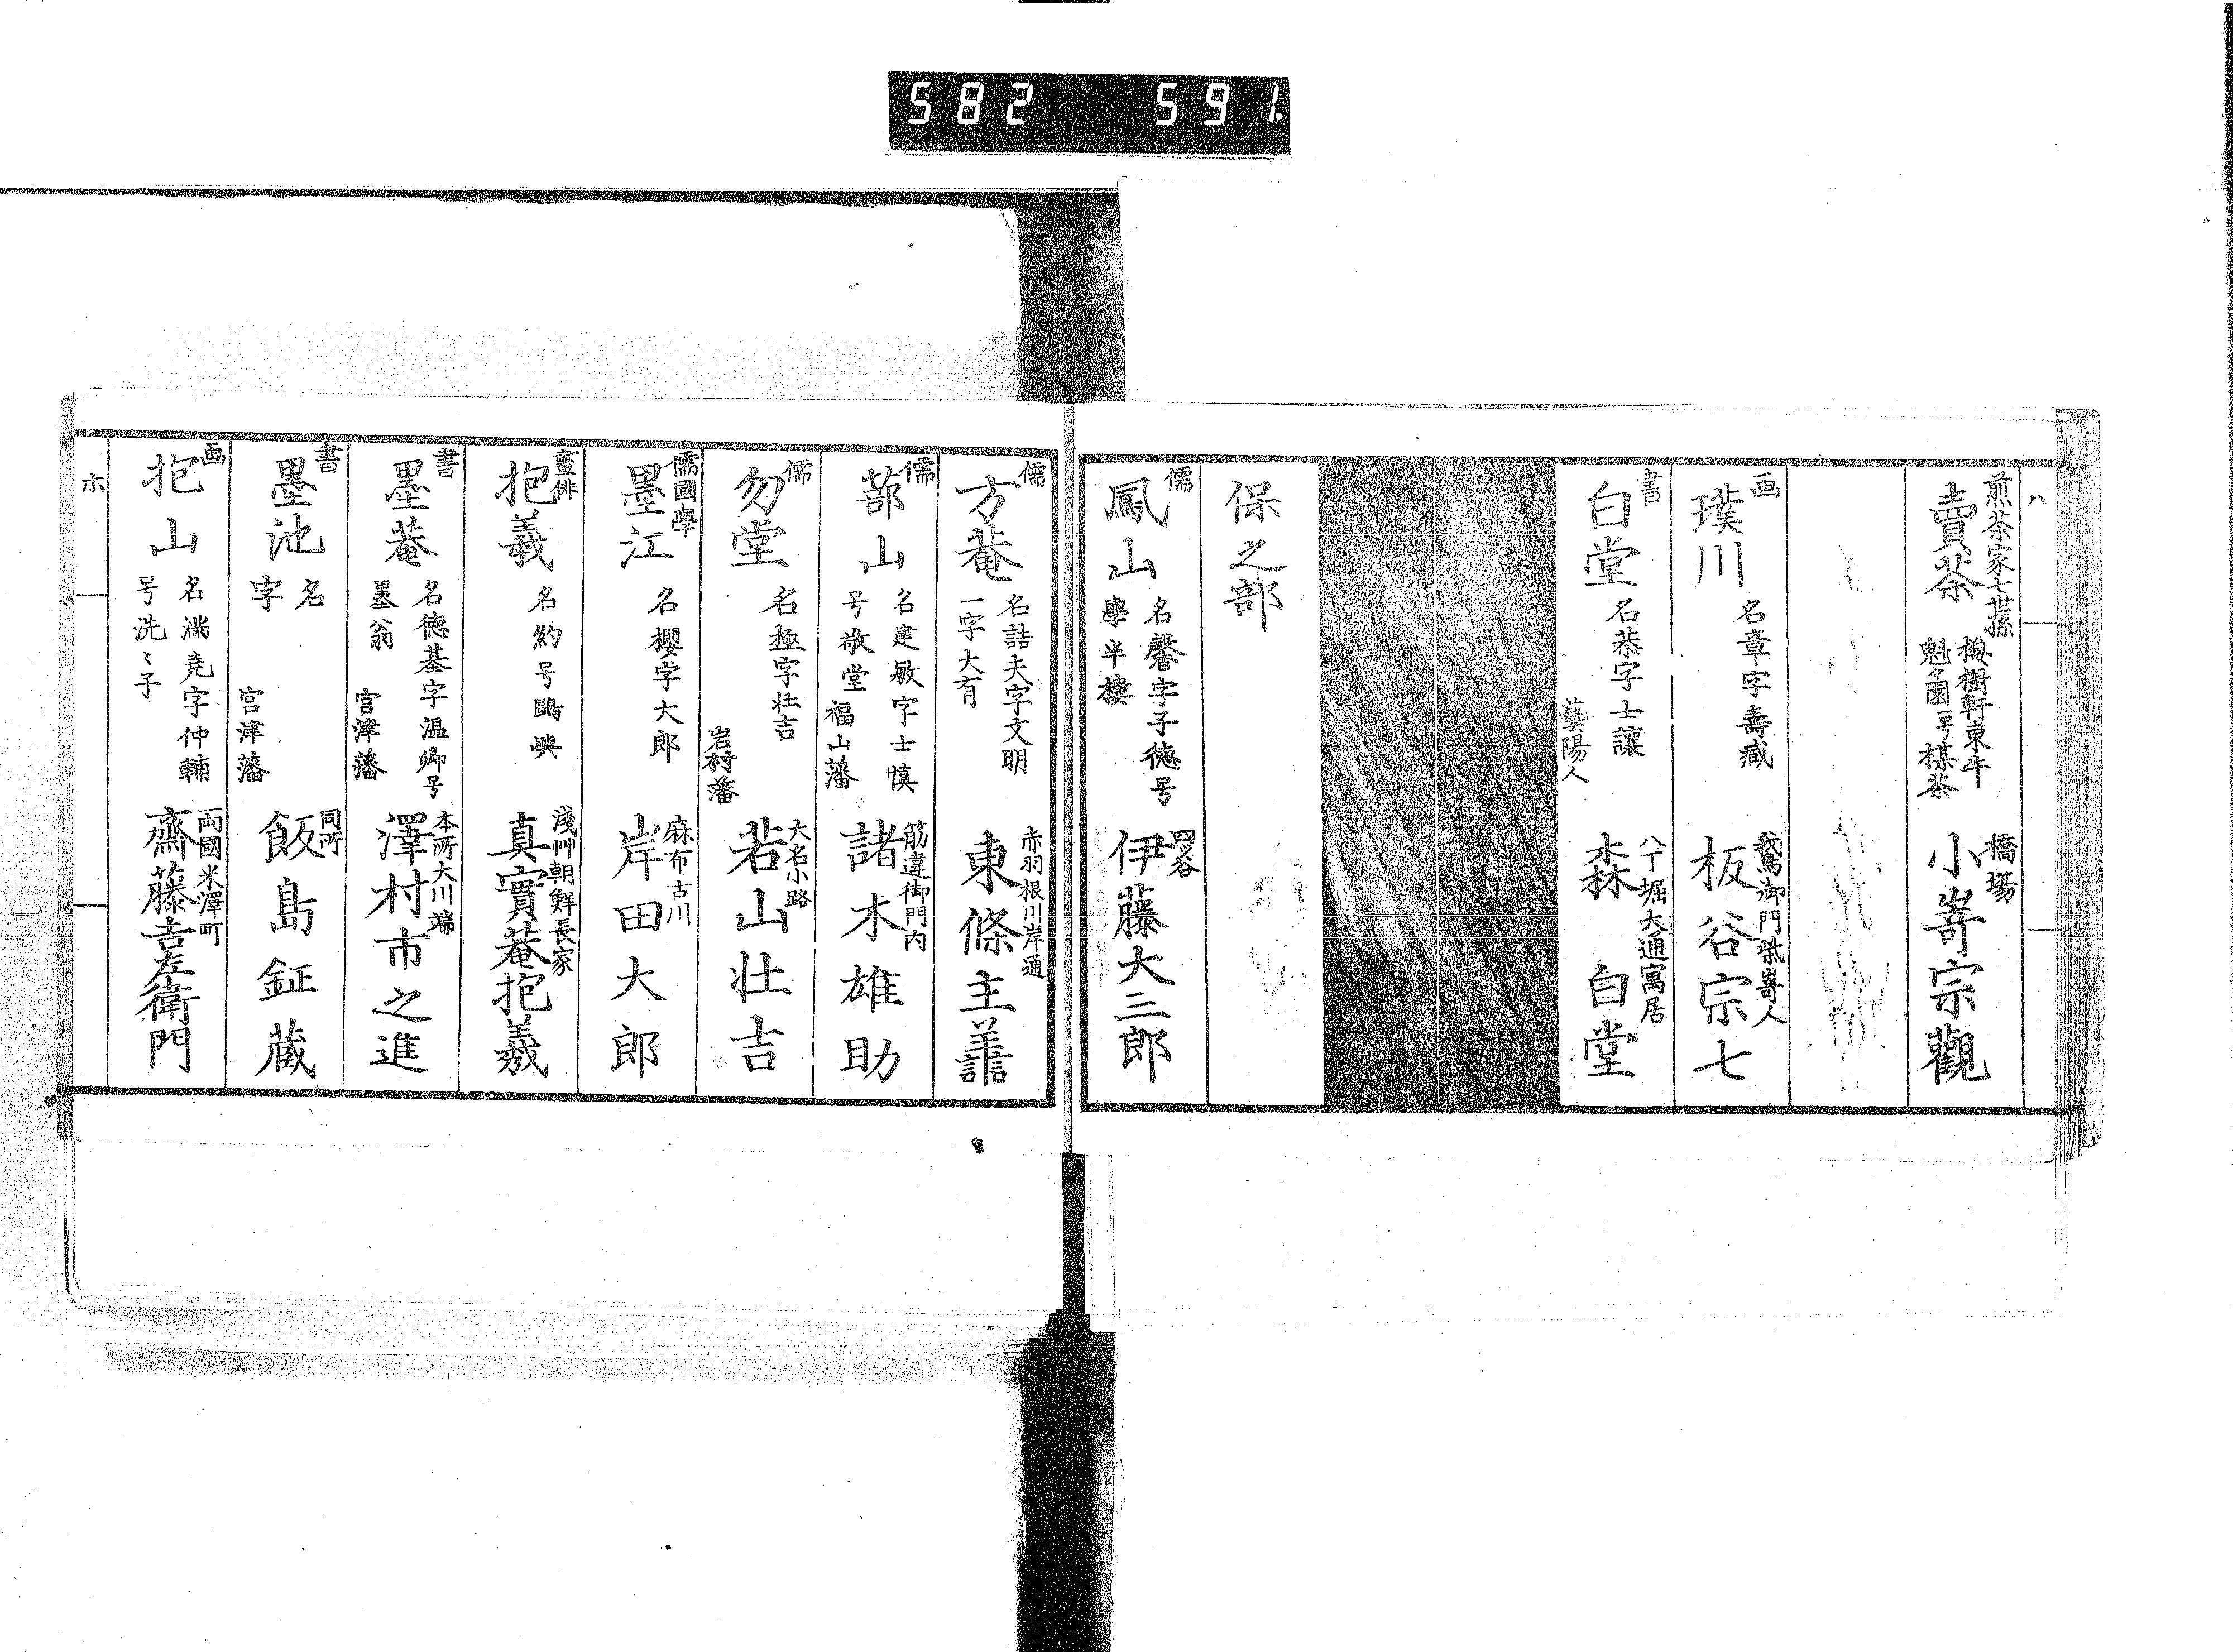 582 591
ハ
煎茶家七世孫
賣茶
梅樹軒東牛
魁々園一号楳茶
橋場
小嵜宗觀
画
璞川
名章字壽臧
鍛冶御門柴嵜人
板谷宗七
書
白堂
名恭字士讓
藝陽人
八丁堀大通寓居
森白堂
保之部
儒
鳳山
名馨字子徳号
學半樓
四ツ谷
伊藤大三郎
儒
方菴
名詰夫字文明
一字大有
赤羽根川岸通
東條主善
儒
蔀山
名建敏字士慎
号敬堂
福山藩
筋違御門内
諸木雄助
儒
勿堂
名極字壮吉
岩村藩
大名小路
若山壮吉
儒國學
墨江
名櫻字大郎
麻布古川
岸田大郎
畫俳
抱義
名約号鷗嶼
淺艸朝鮮長家
真實菴抱義
書
墨菴
名徳基字温卿号
墨翁
宮津藩
本所大川端
澤村市之進
書
墨池
名
字
宮津藩
同所
飯島鉦蔵
画
抱山
名満尭字仲輔
号洗〻子
両國米澤町
齋藤吉左衛門
ホ